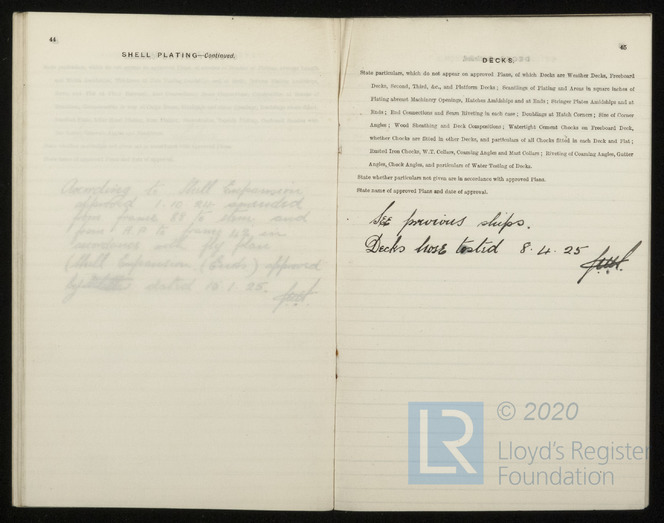 44
SHELL PLATING—Continued.
According to Shell Expansion
approved 1.10.24 amended
from frame 88 to stem and
from A.P. to frame 42 in
accordance with fly plan
(Shell Expansion (Ends) approved
by letter dated 10.1.25.
45
DECKS.
State particulars, which do not appear on approved Plans, of which Decks are Weather Decks, Freeboard
Decks, Second, Third, &c., and Platform Decks; Scantlings of Plating and Areas in square inches of
Plating abreast Machinery Openings, Hatches Amidships and at Ends; Stringer Plates Amidships and at
Ends; End Connections and Seam Riveting in each case; Doublings at Hatch Corners; Size of Corner
Angles; Wood Sheathing and Deck Compositions; Watertight Cement Chocks on Freeboard Deck,
whether Chocks are fitted in other Decks, and particulars of all Chocks fitted in each Deck and Flat;
Rusted Iron Chocks, W.T. Collars, Coaming Angles and Mast Collars; Riveting of Coaming Angles, Gutter
Angles, Chock Angles, and particulars of Water Testing of Decks.
State whether particulars not given are in accordance with approved Plans.
State name of approved Plans and date of approval.
SEE previous ships.
Decks hose tested 8.4.25
LR
© 2020
Lloyd's Register
Foundation